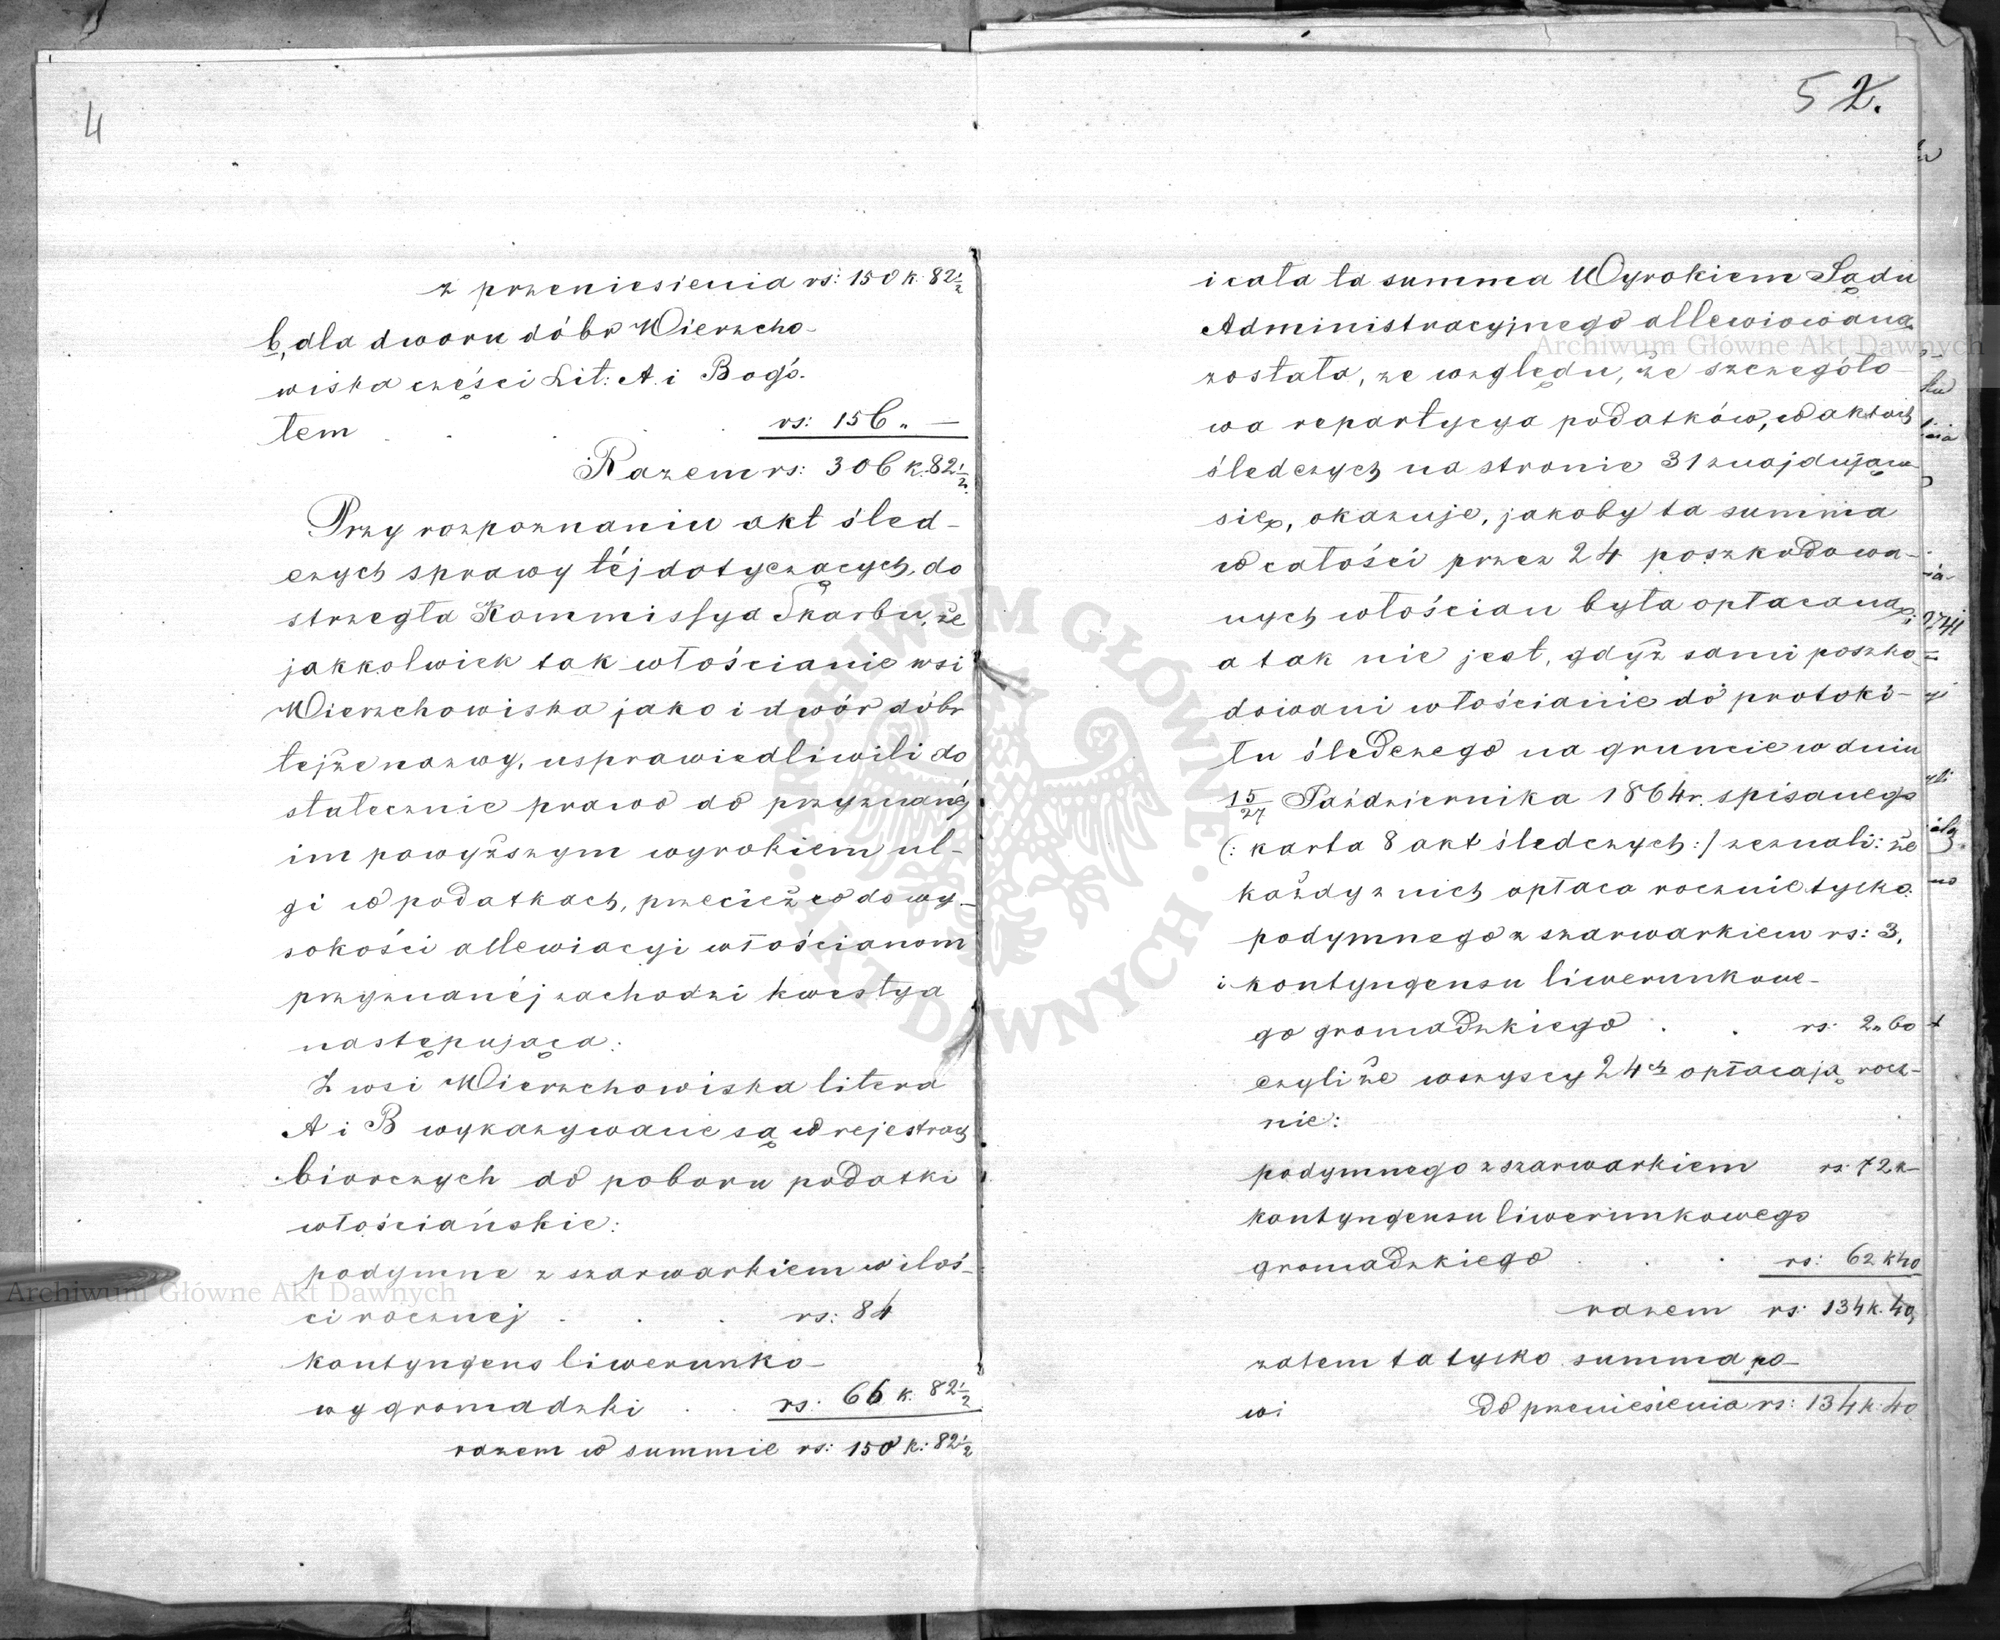 4
z przeniesienia rs: 150 k. 82 1/2
b, dla dworu dóbr Wierzcho-
wiska części Lit: A. i B ogó-
łem . . . . rs: 156 „ —
Razem rs: 306 k. 82 1/2.
Przy rozpoznaniu akt śled-
czych sprawy téj dotyczących, do
strzegła Kommissya Skarbu, że
jakkolwiek tak włościanie wsi
Wierzchowiska jako i dwór dóbr
tejże nazwy, usprawiedliwili do
statecznie prawo do przyznanéj
im powyższym wyrokiem ul-
gi w podatkach, przecież co do wy-
sokości allewiacyi włościanom
przyznanéj zachodzi kwestya
następująca:
Z wsi Wierzchowiska litera
A i B wykazywane są w rejestrach
biorczych do poboru podatki
włościańskie:
podymne z szarwarkiem w iloś-
ci rocznej . . . rs: 84
kontyngens liwerunko-
wy gromadzki . . rs: 66 k. 82 1/2
razem w summie rs: 150 k: 82 1/2
5 2.
i cała ta summa Wyrokiem Sądu
Administracyjnego allewiowaną
została, ze względu, że szczegóło-
wa repartycya podatków, w aktach
śledczych na stronie 31 znajdująca
się, okazuje, jakoby ta summa
w całości przez 24 poszkodowa-
nych włościan była opłacaną,
a tak nie jest, gdyż sami poszko
dowani włościanie do protokó-
łu śledczego na gruncie w dniu
15/27 Października 1864 r. spisanego
(: karta 8 akt śledczych :) zeznali: że
każdy z nich opłaca rocznie tylko:
podymnego z szarwarkiem rs: 3,
i kontyngensu liwerunkowe-
go gromadzkiego . . rs: 2 „ 60
czyli że wszyscy 24ch opłacają rocz-
nie:
podymnego z szarwarkiem rs: 72 k —
kontyngensu liwerunkowego
gromadzkiego . . . rs: 62 k 40
razem rs: 134 k. 40,
zatem ta tylko summa po-
wi do przeniesienia rs: 134 k: 40
Archiwum Główne Akt Dawnych
Archiwum Główne Akt Dawnych
ARCHIWUM GŁÓWNE · AKT DAWNYCH ·